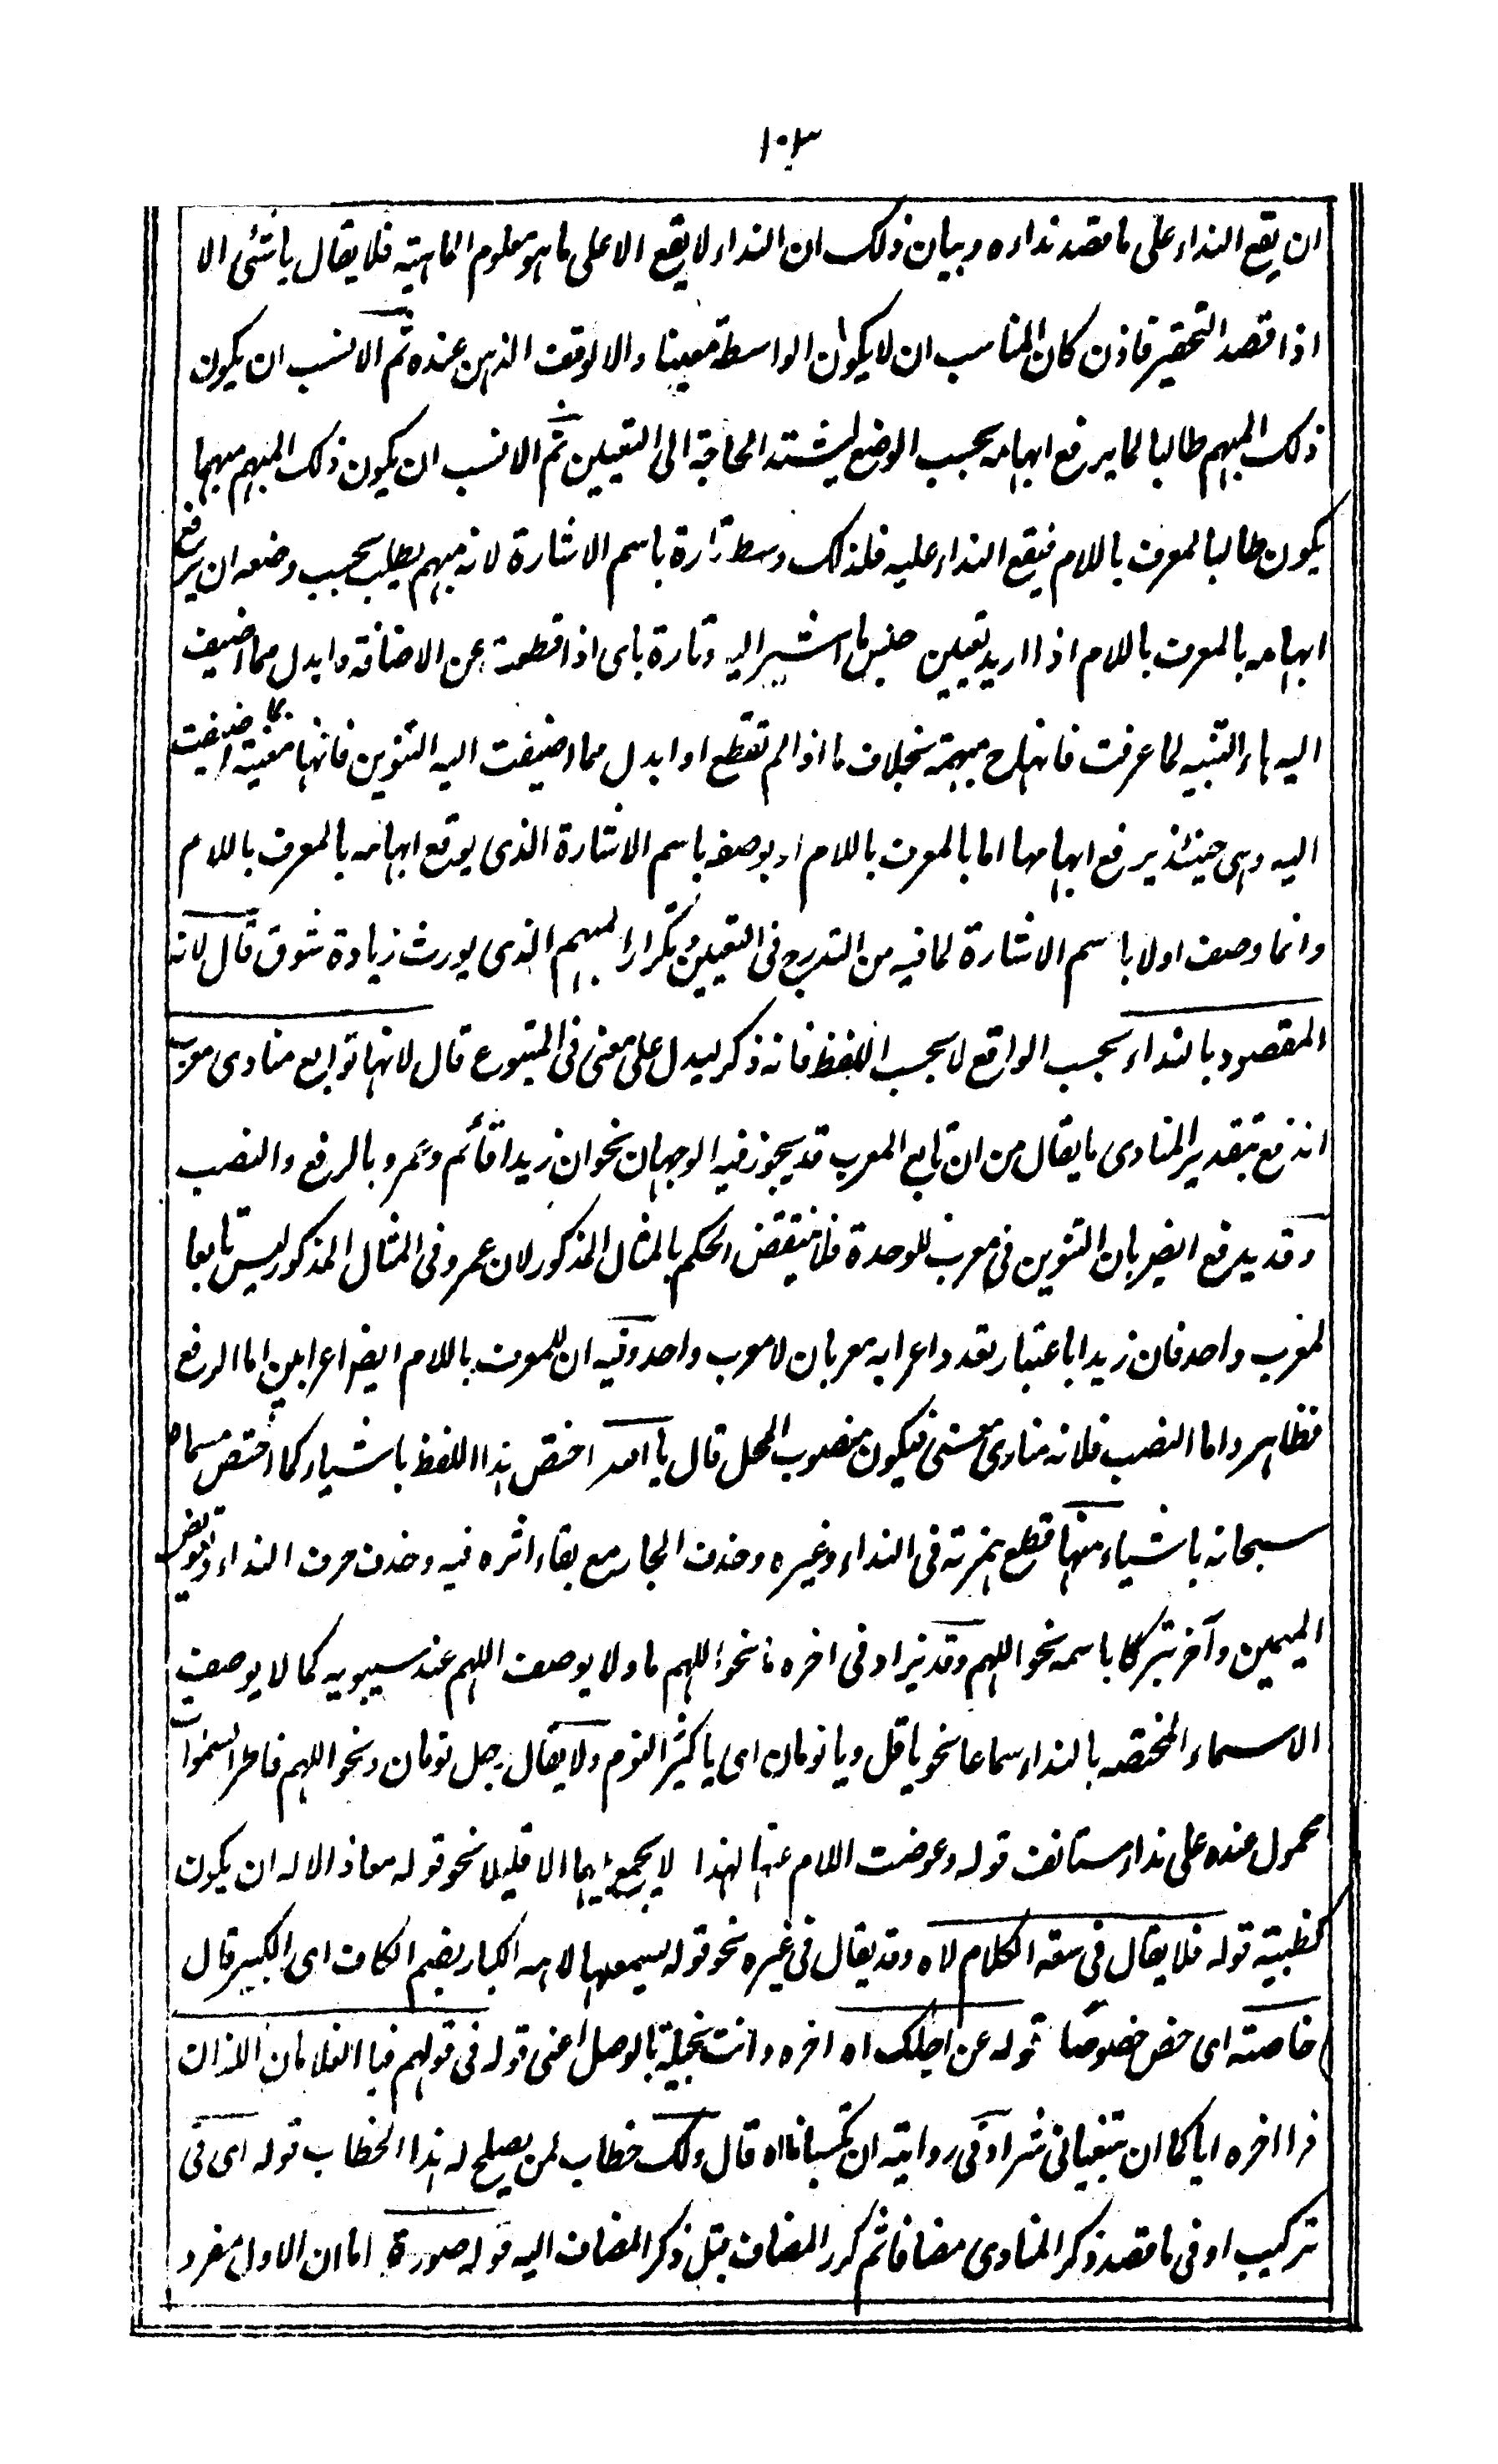 ١٠٣
ان يقع النداء على ما قصد نداءه وبيان ذلك ان النداء لا يقع الا على ما هو معلوم الماهية فلا يقال يا شئ الا
اذا قصد التحقير فاذن كان المناسب ان لا يكون الواسطة معينا والا لوقف الذهن عنده ثم الانسب ان يكون
ذلك المبهم طالبا لما يرفع ابهامه بحسب الوضع ليشتد الحاجة الى التعيين ثم الانسب ان يكون ذلك المبهم مبهما
يكون طالبا لمعرف باللام فيقع النداء عليه فلذلك وسط تارة باسم الاشارة لانه مبهم يطلب بحسب وضعه ان يرفع
ابهامه بالمعرف باللام اذا اريد تعيين جنس ما اشير اليه وتارة باى اذا قطعت عن الاضافة وابدل مما اضيف
اليه هاء التنبيه لما عرفت فانها ح مبهمة بخلاف ما اذا لم تقطع او ابدل مما اضيفت اليه التنوين فانها مغنية بما اضيفت
اليه وهى حينئذ يرفع ابهامها اما بالمعرف باللام او بوصفه باسم الاشارة الذى يرفع ابهامه بالمعرف باللام
وانما وصف اولا باسم الاشارة لما فيه من التدريج فى التعيين وتكرار المبهم الذى يورث زيادة شوق قال لانه
المقصود بالنداء بحسب الواقع لا بحسب اللفظ فانه ذكر ليدل على معنى فى المتبوع قال لانها توابع منادى معرب
اندفع بتقدير المنادى ما يقال من ان تابع المعرب قد يجوز فيه الوجهان نحو ان زيدا قائم وعمرو بالرفع والنصب
وقد يدفع ايضر بان التنوين فى معرب للوحدة فلا ينتقض الحكم بالمثال المذكور لان عمرو فى المثال المذكور ليس تابعا
لمعرب واحد فان زيدا باعتبار تعدد اعرابه معربان لا معرب واحد وفيه ان للمعرف باللام ايضر اعرابين اما الرفع
فظاهر واما النصب فلانه منادى مبنى فيكون منصوب المحل قال يا الله اختص هذا اللفظ باشياء كما اختص مسماه
سبحانه باشياء منها قطع همزته فى النداء وغيره وحذف الجار مع بقاء اثره فيه وحذف حرف النداء وتعويض
الميمين وآخر تبركا باسمه نحو اللهم وقد يزاد فى اخره ما نحو اللهم ما ولا يوصف اللهم عند سيبويه كما لا يوصف
الاسماء المختصه بالنداء سماعا نحو يا فل ويا نومان اى يا كثير النوم ولا يقال رجل نومان ونحو اللهم فاطر السموات
محمول عنده على نداء مستانف قوله وعوضت اللام عنها لهذا لا يجمع بينهما الا قليلا نحو قوله معاذ الاله ان يكون
كظبية قوله فلا يقال فى سعة الكلام لاه وقد يقال فى غيره نحو قوله يسمعها لاهه الكبار بضم الكاف اى الكبير قال
خاصة اى خص خصوصا قوله من اجلك اه اخره وانت بخيلة بالوصل اعنى قوله فى قولهم فيا الغلامان اللذان
فرا اخره اياكما ان تبغيانى شرا وفى رواية ان تكسبانا اه قال ولك خطاب لمن يصلح له هذا الخطاب قوله اى فى
تركيب او فى ما قصد ذكر المنادى مضافا ثم كرر المضاف قبل ذكر المضاف اليه قوله صورة اما ان الاول مفرد